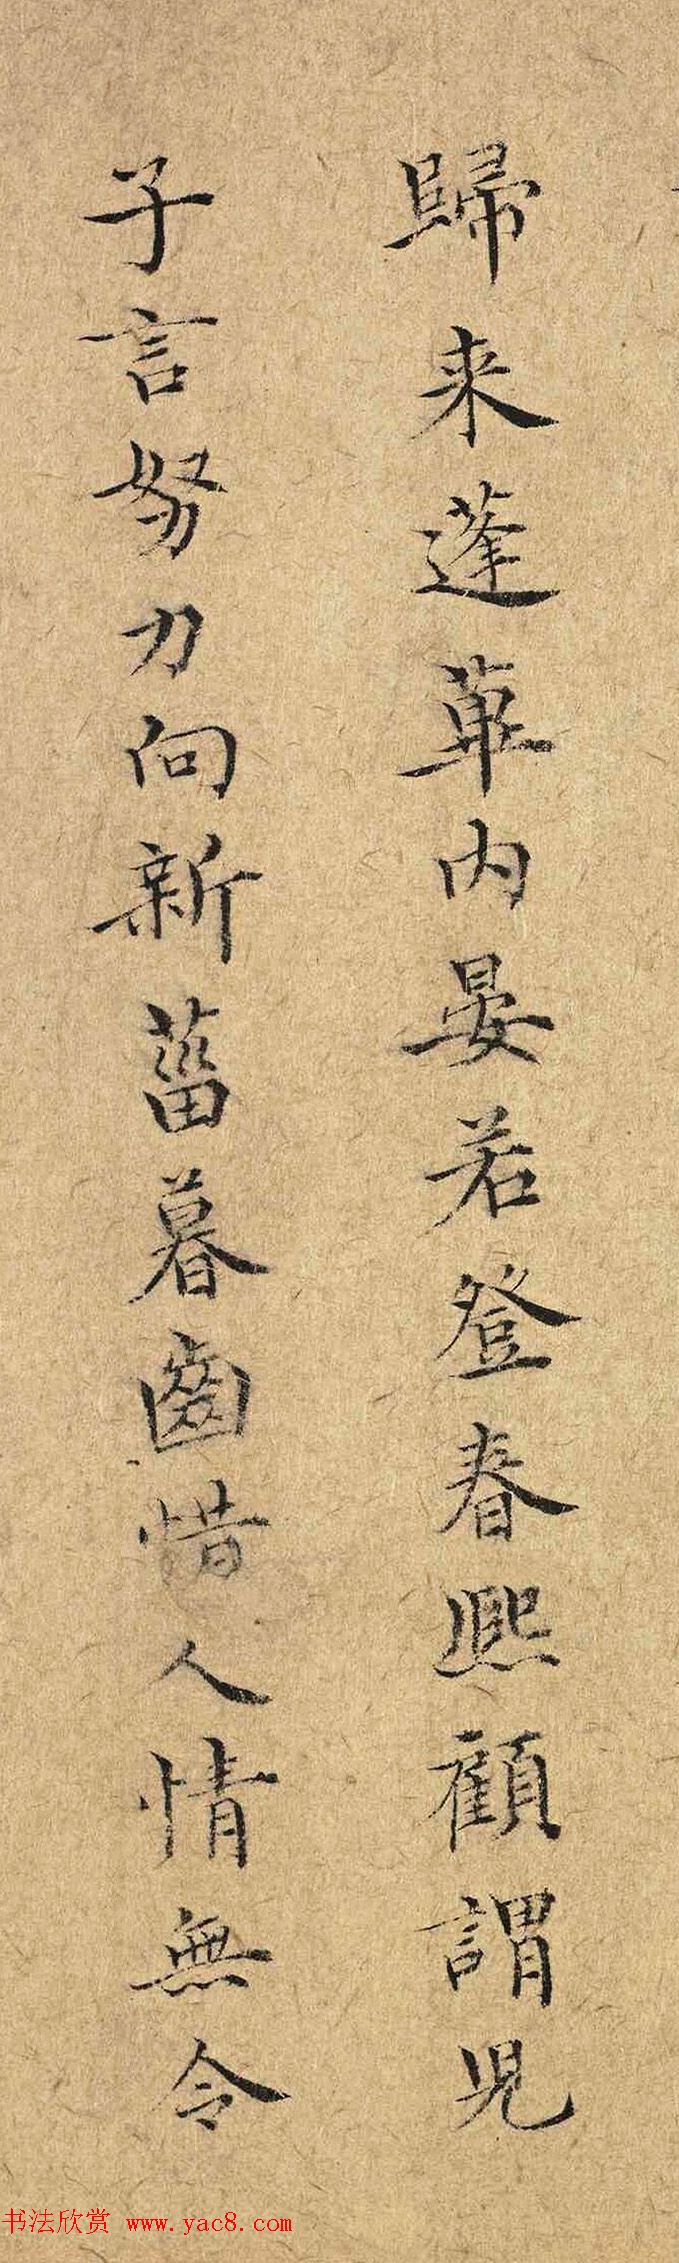 歸来蓬蓽内晏若登春熙顧謂児
子言努力向新菑暮齒惜人情無令
书法欣赏 www.yac8.com